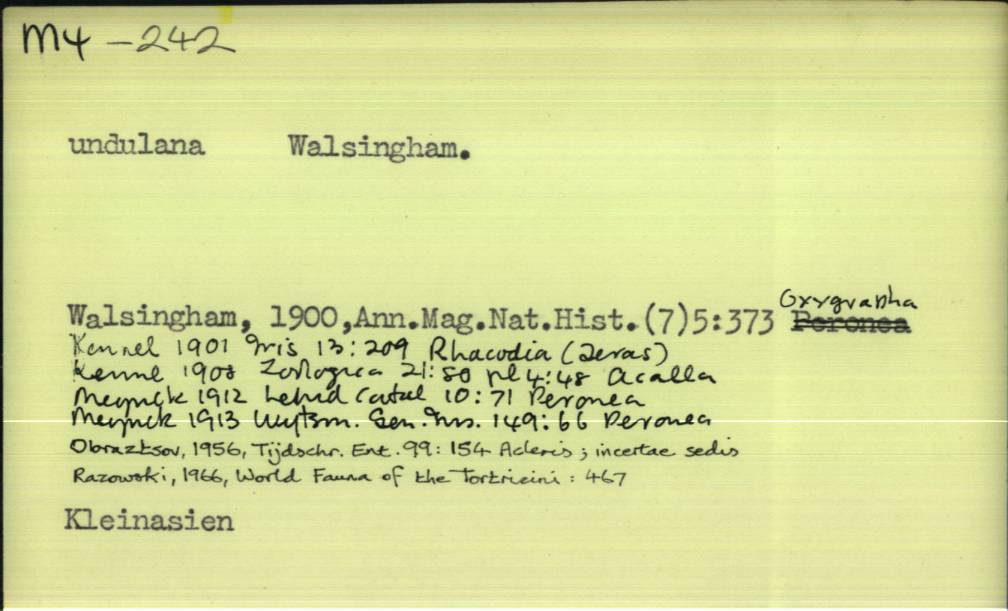 M4 - 242
undulana Walsingham.
Oxygrapha
Walsingham, 1900,Ann.Mag.Nat.Hist.(7)5:373 Peronea
Kennel 1901 Iris 13: 209 Rhacodia (Teras)
Kennel 1908 Zoologica 21: 80 pl 4: 48 Acalla
Meyrick 1912 Lepid Catal 10: 71 Peronea
Meyrick 1913 Wytsm. Gen. Ins. 149: 66 Peronea
Obraztsov, 1956, Tijdschr. Ent. 99: 154 Acleris; incertae sedis
Razowski, 1966, World Fauna of the Tortricini: 467
Kleinasien